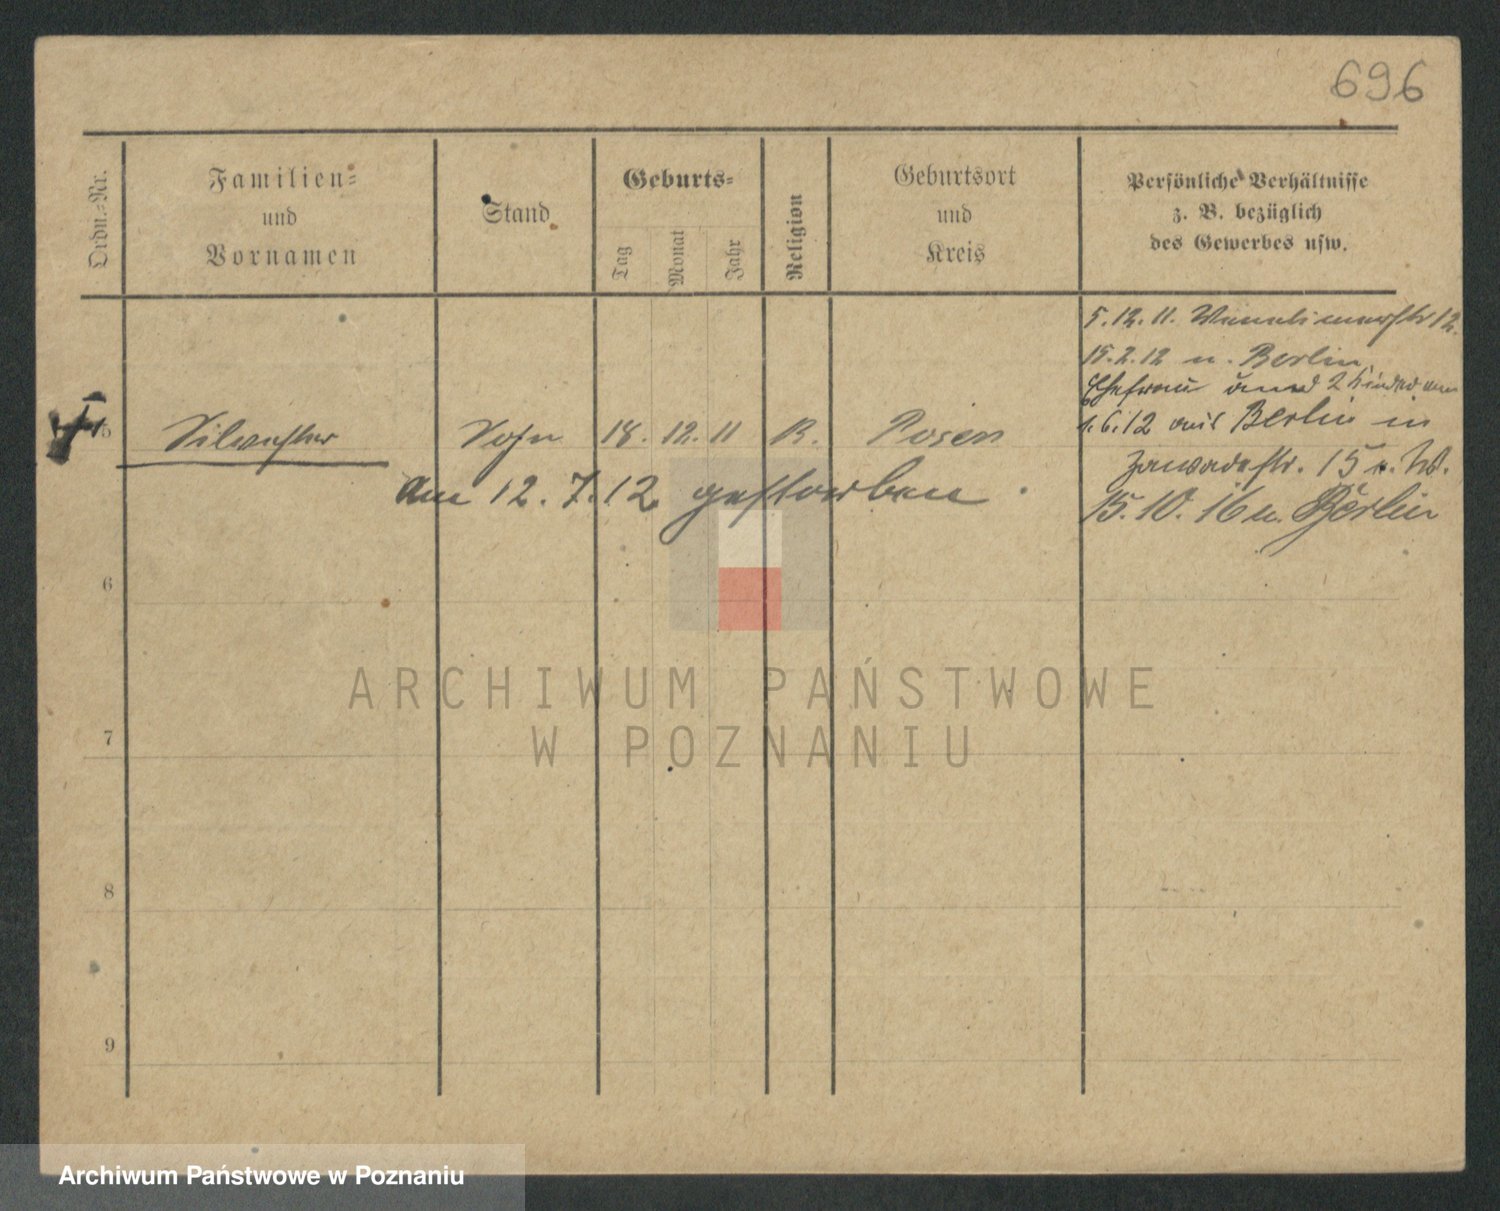 696
Ordn.-Nr.
Familien-
und
Vornamen
Stand
Geburts-
Tag
Monat
Jahr
Religion
Geburtsort
und
Kreis
Persönliche Verhältnisse
z. B. bezüglich
des Gewerbes usw.
5.12.11. 12.
15.2.12 n. Berlin,
Ehefrau und 2 Kinder am
1.6.12 aus Berlin in
Zawadestr. 15 b. W.
15.10.16 n. Berlin
5 Silvester Sohn 18. 12. 11 R. Posen
am 12.7.12 gestorben.
6
7
8
9
ARCHIWUM PAŃSTWOWE
W POZNANIU
Archiwum Państwowe w Poznaniu